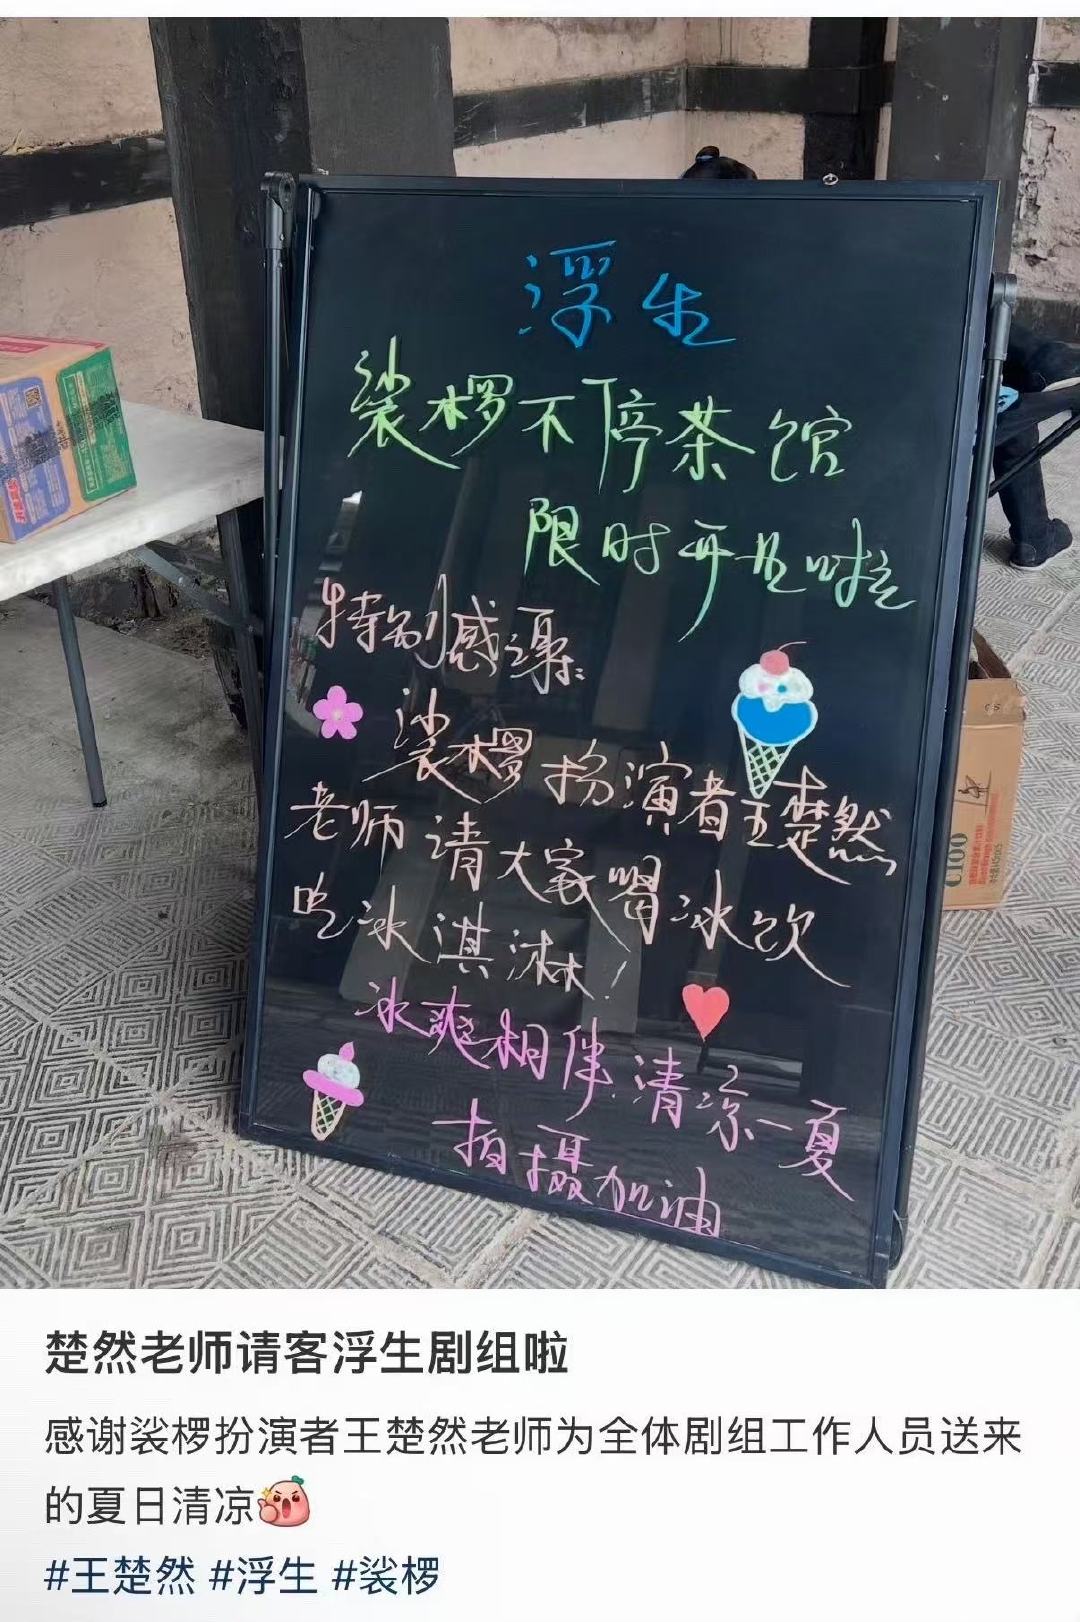 浮生
裟椤不停茶馆
限时开业啦
特别感谢:
裟椤扮演者王楚然
老师请大家喝冰饮
吃冰淇淋!
冰爽相伴 清凉一夏
拍摄加油
C100
楚然老师请客浮生剧组啦
感谢裟椤扮演者王楚然老师为全体剧组工作人员送来
的夏日清凉
#王楚然 #浮生 #裟椤